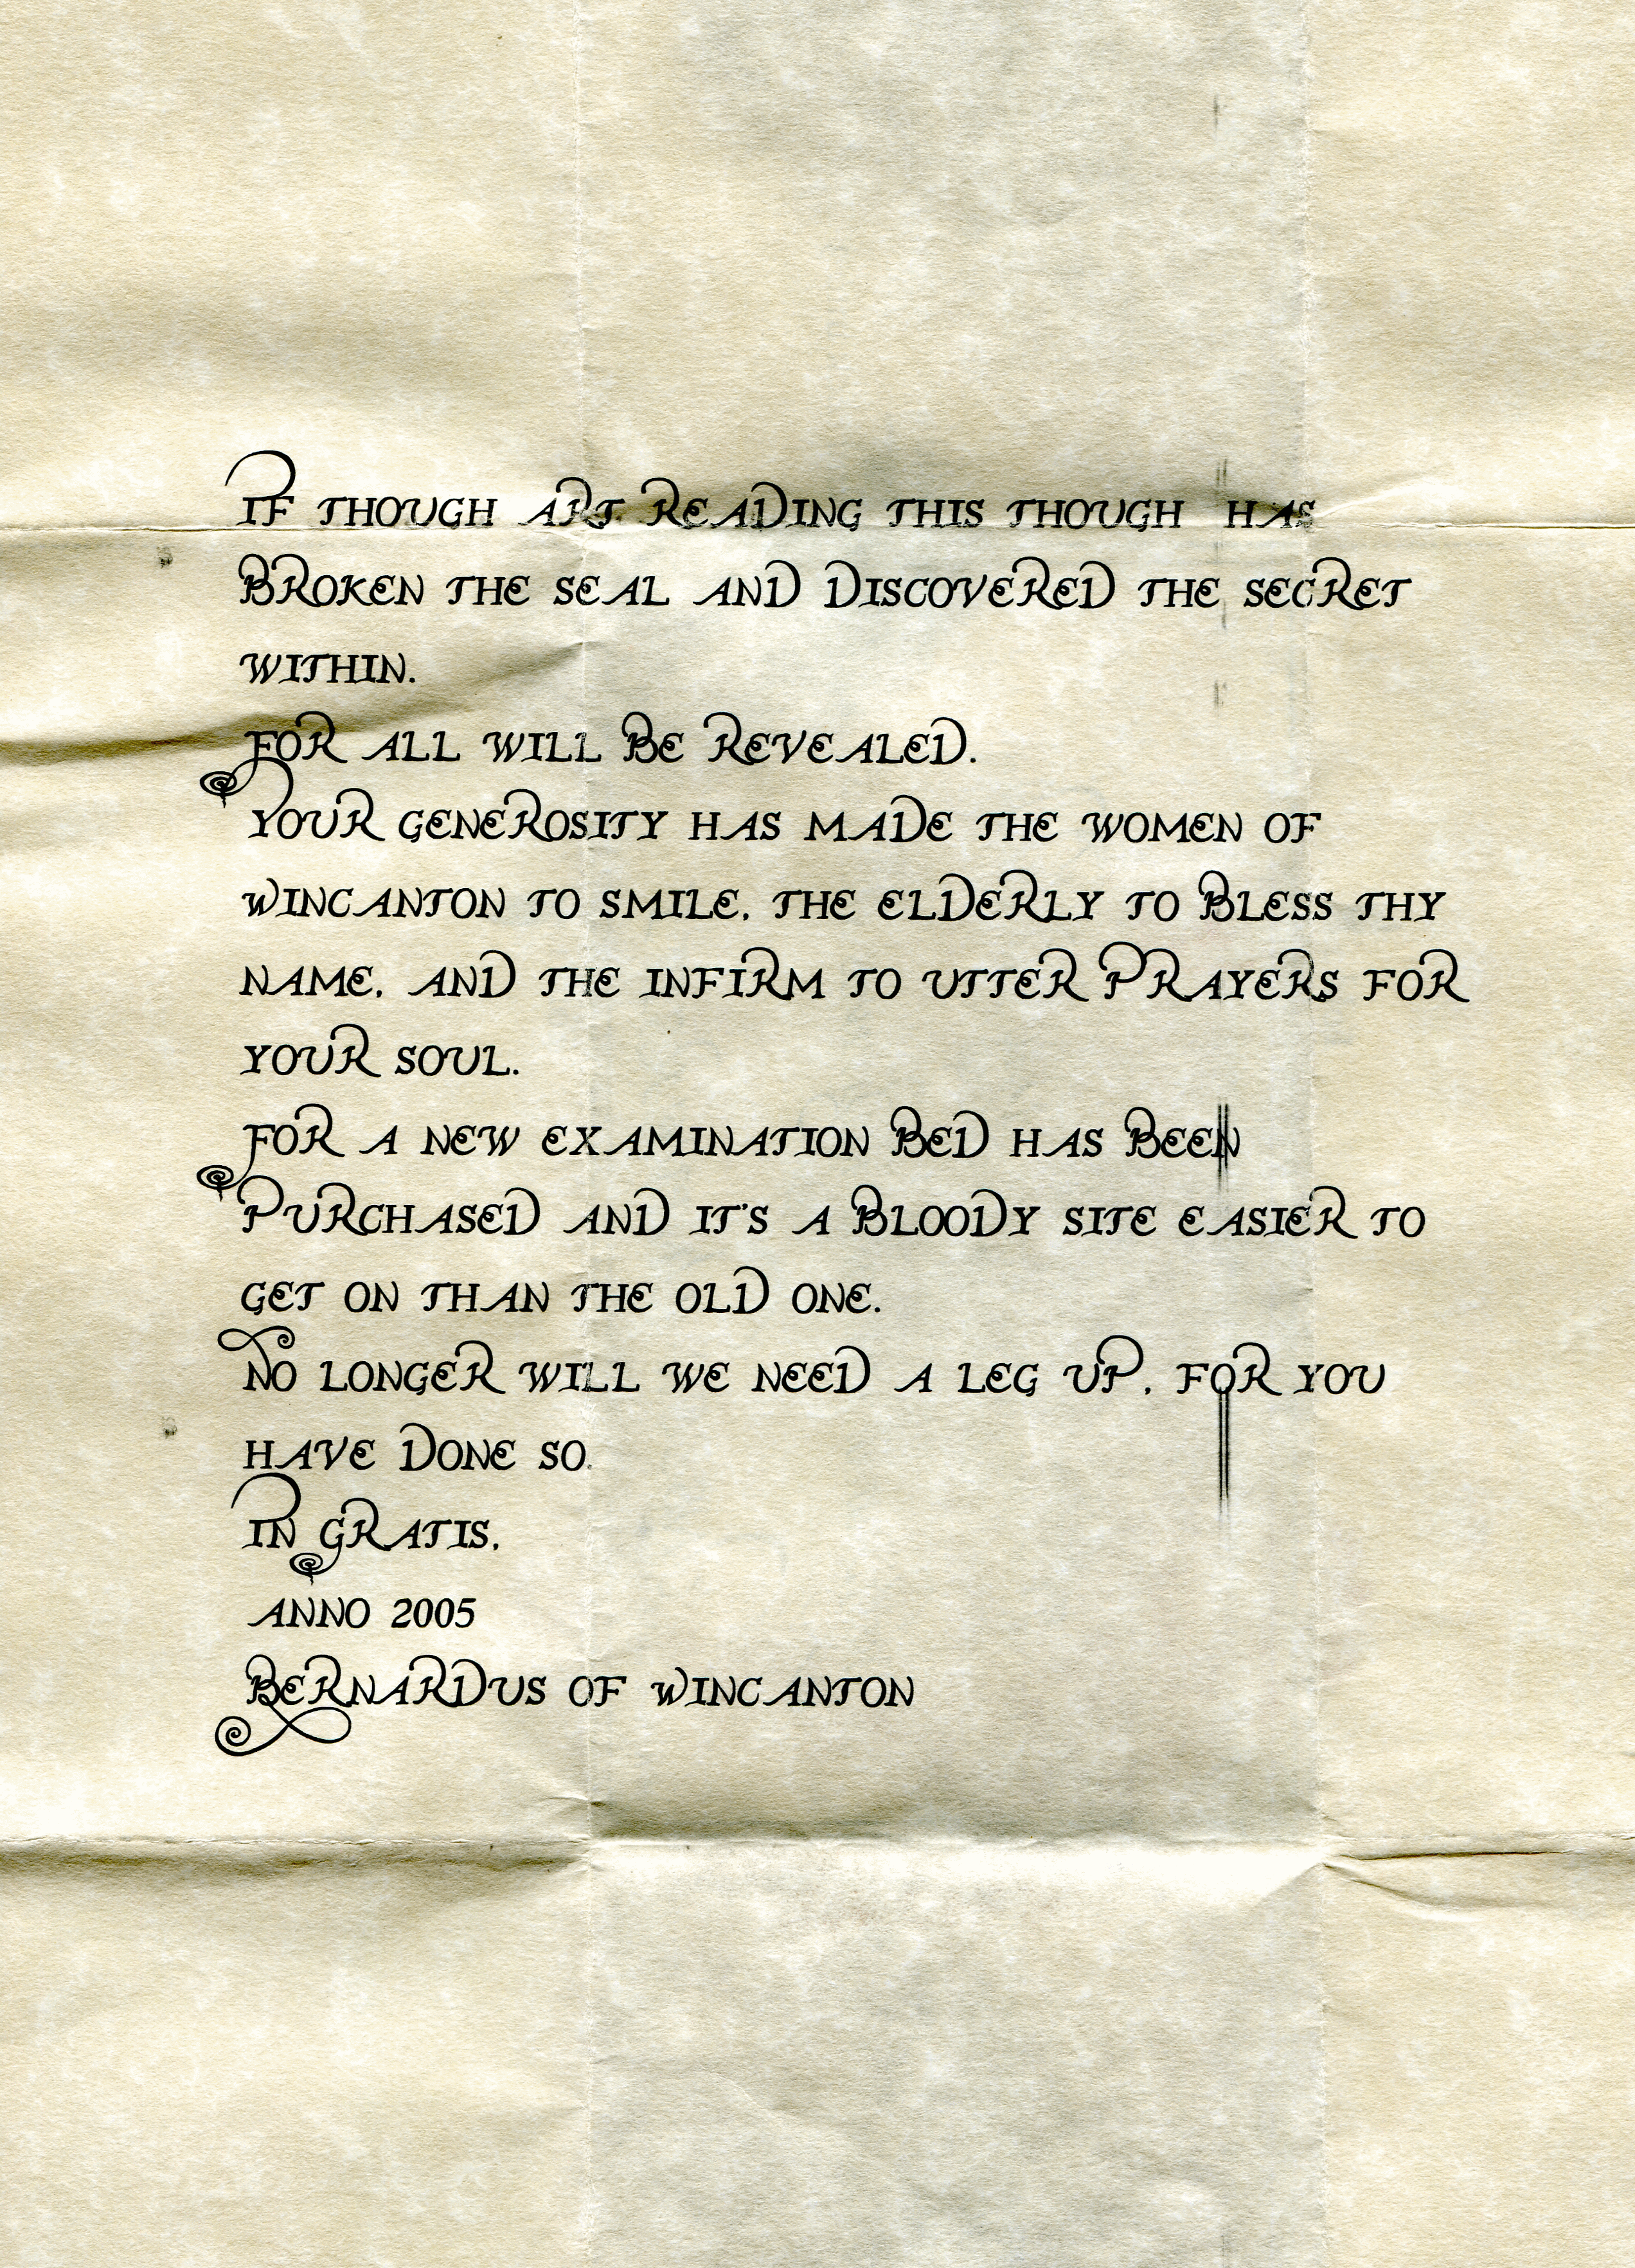 IF THOUGH ART READING THIS THOUGH HAS
BROKEN THE SEAL AND DISCOVERED THE SECRET
WITHIN.
FOR ALL WILL BE REVEALED.
YOUR GENEROSITY HAS MADE THE WOMEN OF
WINCANTON TO SMILE, THE ELDERLY TO BLESS THY
NAME, AND THE INFIRM TO UTTER PRAYERS FOR
YOUR SOUL.
FOR A NEW EXAMINATION BED HAS BEEN
PURCHASED AND IT'S A BLOODY SITE EASIER TO
GET ON THAN THE OLD ONE.
NO LONGER WILL WE NEED A LEG UP, FOR YOU
HAVE DONE SO.
IN GRATIS,
ANNO 2005
BERNARDUS OF WINCANTON